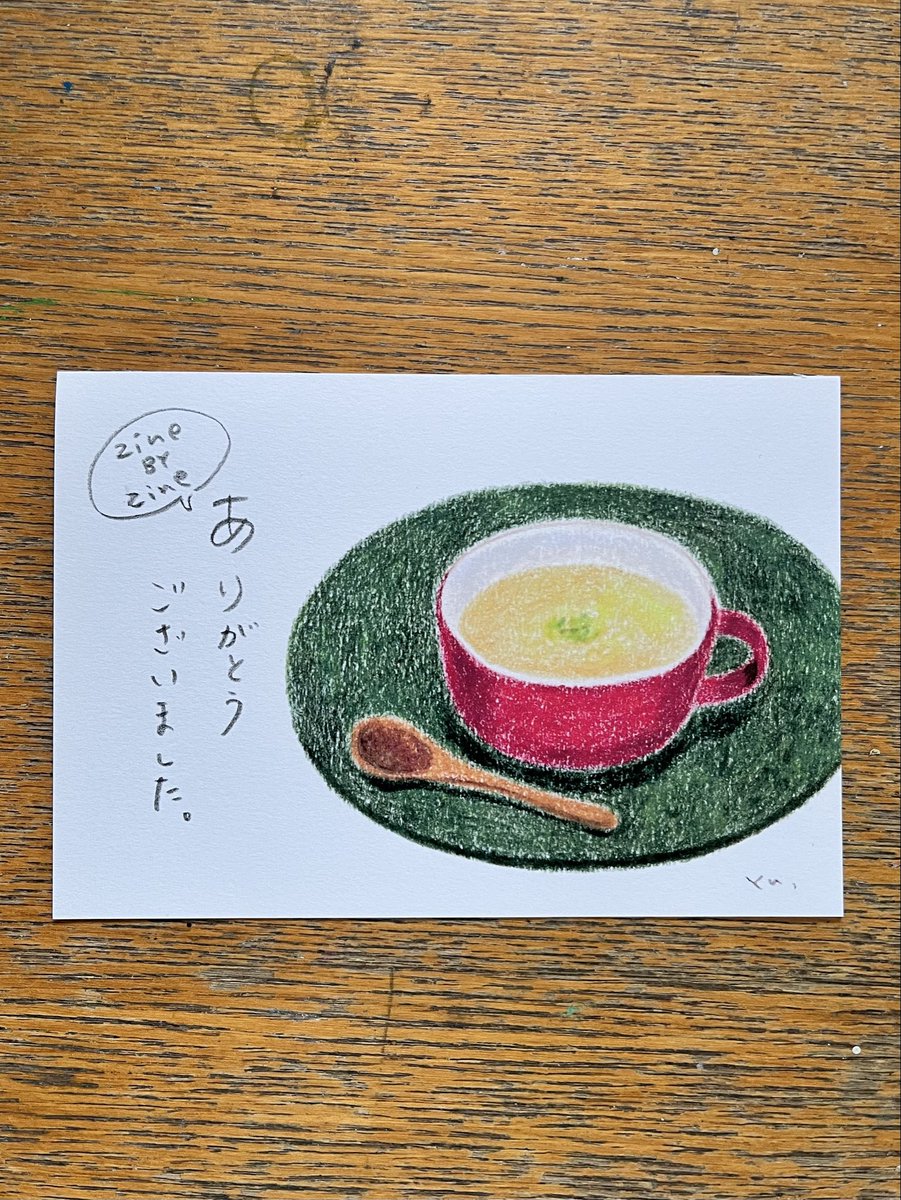 zine
BY
zine
ありがとう
ございました。
Yu,